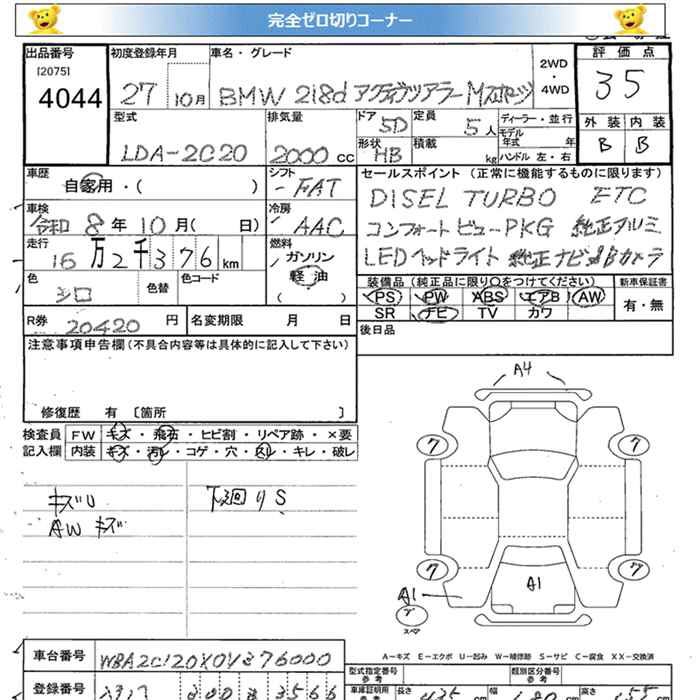 完全ゼロ切りコーナー
出品番号 初度登録年月 車名・グレード 2WD・4WD 評価点
[2075]
4044 27 10月 BMW 218d アクティブツアラー Mスポーツ 35
型式 排気量 ドア 5D 定員 5人 ディーラー・並行 外装 内装
LDA-2C20 2000cc 形状 HB 積載 kg モデル年式 年 B B
ハンドル 左・右
車歴 シフト セールスポイント (正常に機能するものに限ります)
自家用・( ) FAT DISEL TURBO ETC
車検 冷房
令和 8年 10月( 日) AAC コンフォートビューPKG 純正アルミ
走行 燃料
16万2千376km ガソリン LEDヘッドライト 純正ナビ Bカメラ
軽・油
( )
色 色替 色コード 装備品 (純正品に限り○をつけてください) 新車保証書
シロ PS PW ABS エアB AW 有・無
R券 20420円 名変期限 月 日 SR ナビ TV カワ
後日品
注意事項申告欄(不具合内容等は具体的に記入して下さい)
修復歴 有 〔箇所 〕
検査員 FW キズ・飛石・ヒビ割・リペア跡・×要
記入欄 内装 キズ・汚レ・コゲ・穴・スレ・キレ・破レ
キズU 下廻りS
AW キズ
A4
7 7
7 7
A1
A1
スペア
A−キズ E−エクボ U−凹み W−補修跡 S−サビ C−腐食 XX−交換済
車台番号 WBA2C120X0V376000
型式指定番号 類別区分番号
参考 参考
登録番号 車庫証明用 長さ 435 cm 幅 180 cm 高さ 155 cm
参考